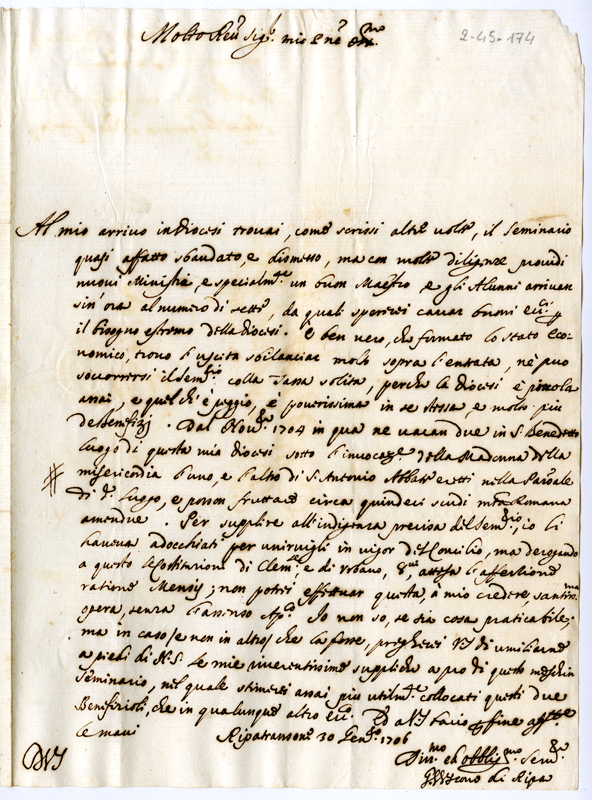 2-45-174
Molto Rev. Sig. mio
Al mio arrivo in diocesi trovai, come scrissi altre volte, il Seminario
quasi affatto sbandato, e dismesso, ma con molte diligenze providi
nuovi Ministri, e specialm.te un buon Maestro, e gli Alunni arrivan
sin'ora al numero di sette, da quali sperarei cavar buoni
il bisogno estremo della diocesi. È ben vero, che formato lo stato eco-
nomico, trovo l'uscita sbilanciar molto sopra l'entrata, nè può
soccorrersi il Sem.rio colla Tassa solita, perche la diocesi è piccola
assai, e quel ch'è peggio, è poverissima in se stessa, e molto più
de Benefizj. Dal Nov.re 1704 in qua ne vacan due in S. Benedetto
luogo di questa mia diocesi sotto l'invocaz.e della Madonna della
misericordia l'uno, e l'altro di S. Antonio Abbate eretti nella Paroale
di d.o luogo, e posson fruttare circa quindeci scudi m.ta Romana
amendue. Per supplire all'indigenza precisa del Sem.rio, io li
haveva adocchiati per unirvigli in vigor del Concilio, ma derogando
a questo le Costitutioni di Clem.te, e di Urbano, 8.vo, attesa l'affettione
ratione Mensis; non potrei effettuar questa, a mio credere, santiss.ma
opera, senza l'assenso Ap.co. Io non so, se sia cosa praticabile;
ma in caso (e non in altro) che la fosse, pregherei VS di umiliare
a piedi di N.S. le mie riverentissime suppliche a prò di questo meschin
Seminario, nel quale stimerei assai più utilm.te collocati questi due
Benefizioli, che in qualunque altro Ed a VS bacio fine
le mani Ripatransone 30 Gen.o 1706
Div.mo ed obblig.mo Serv.re
Vescovo di Ripa
DVS